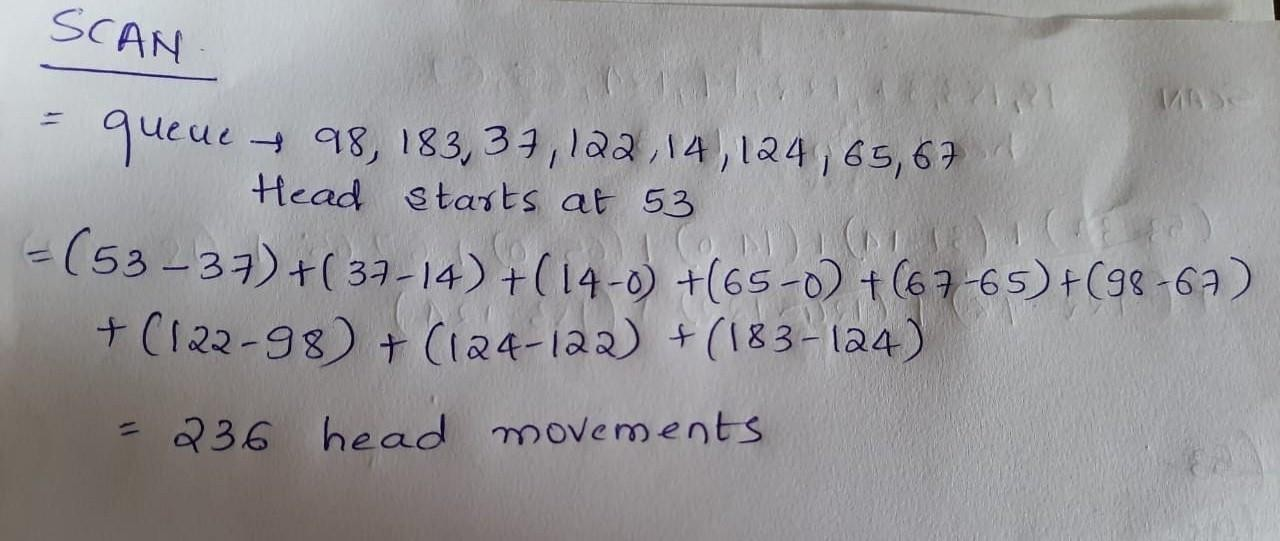 SCAN
= queue → 98, 183, 37, 122, 14, 124, 65, 67
Head starts at 53
= (53-37) + (37-14) + (14-0) + (65-0) + (67-65) + (98-67)
+ (122-98) + (124-122) + (183-124)
= 236 head movements